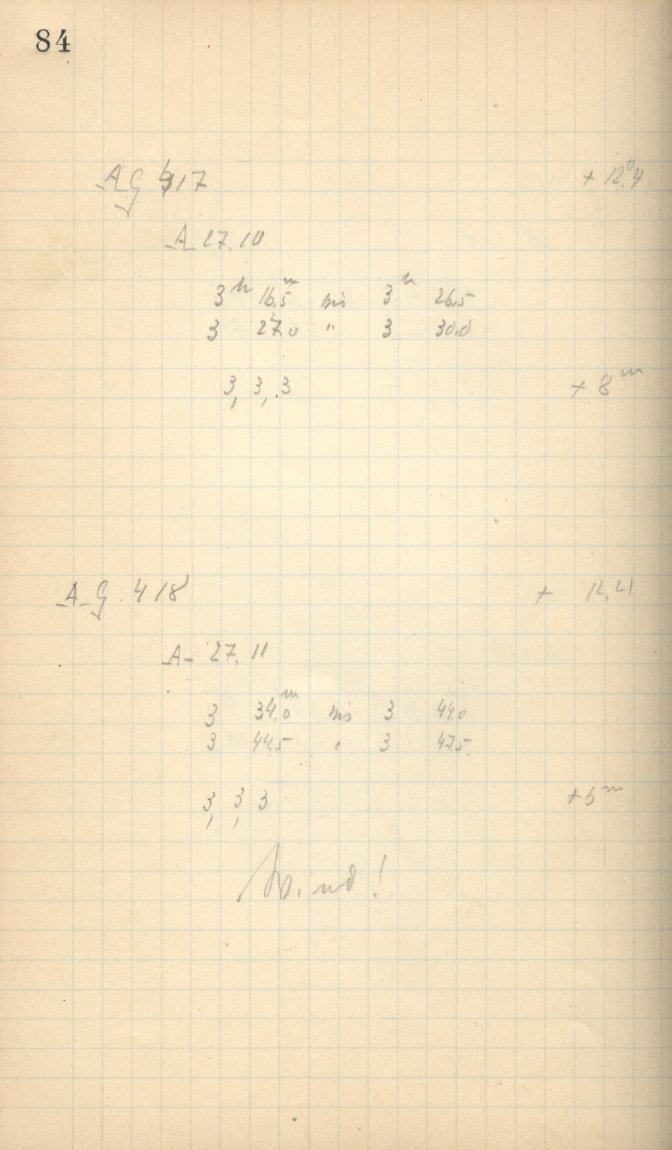 84
A G 417 + 12.°4
A 27.10
3ʰ 16.5ᵐ bis 3ʰ 26.5
3 27.0 " 3 30.0
3, 3, 3 + 8ᵐ
A G 418 +
A 27.11
3 34.0ᵐ bis 3 44.0
3 44.5 " 3 47.5
3, 3, 3 + 6ᵐ
Wind!